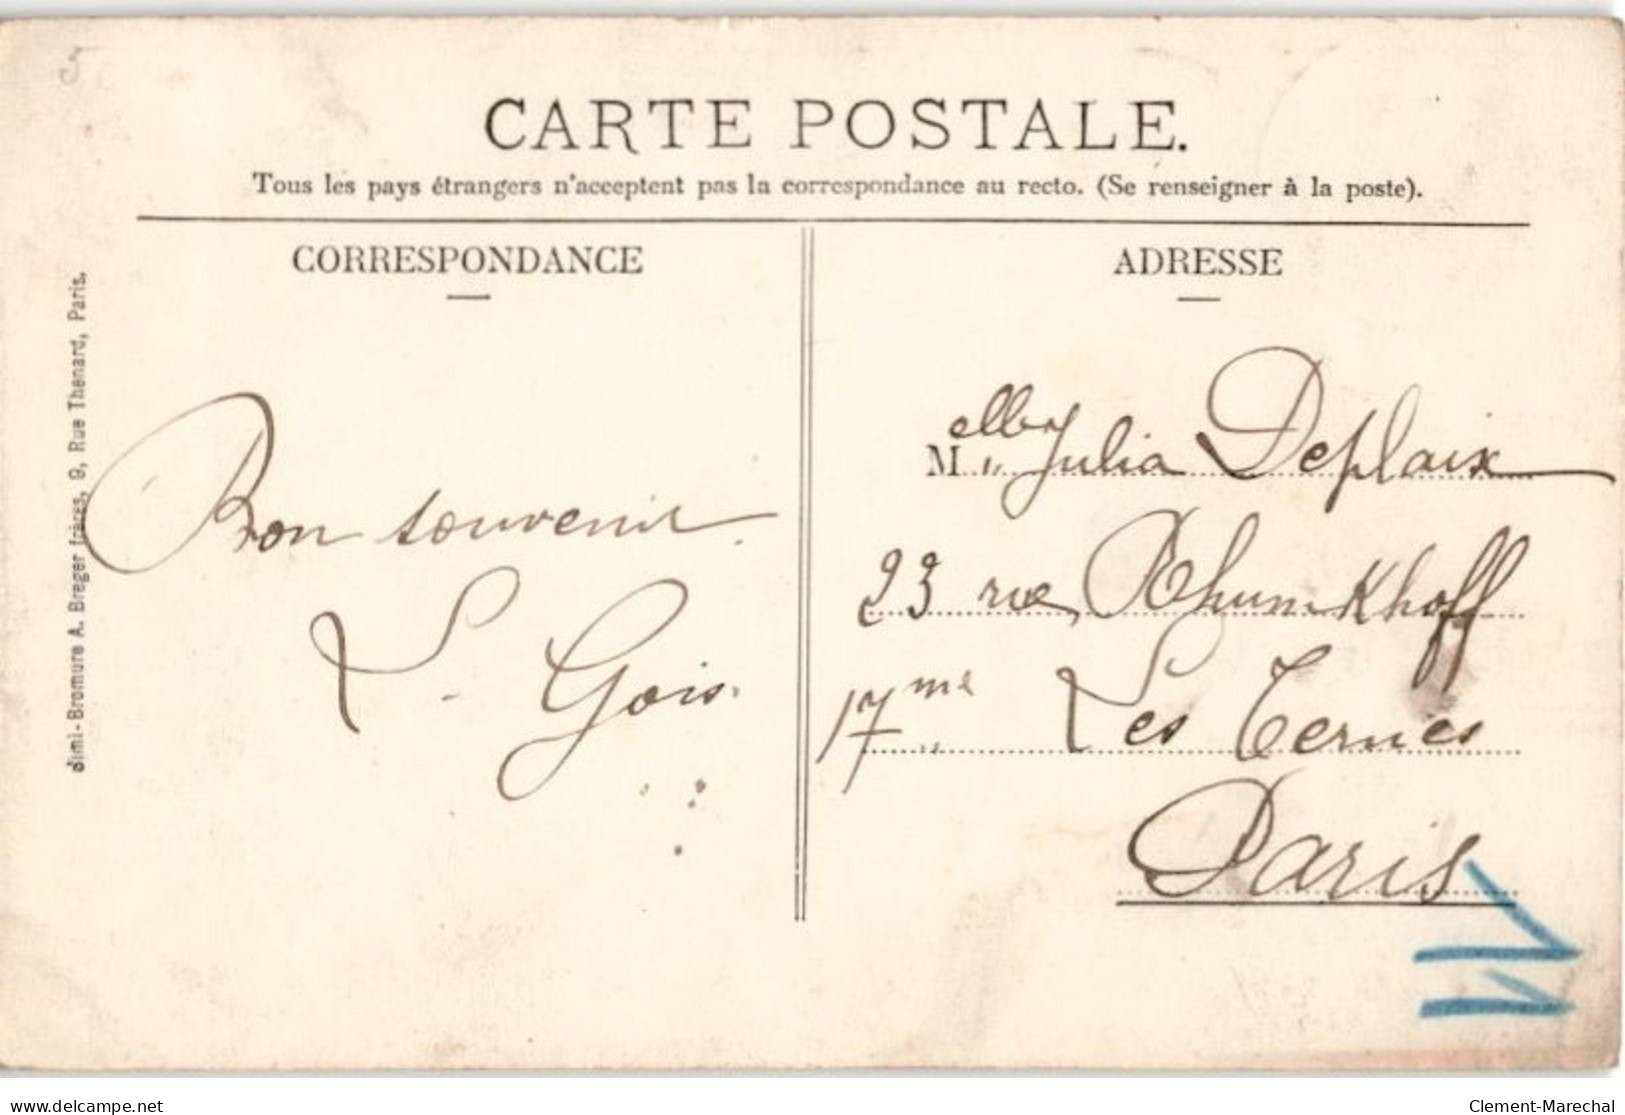 CARTE POSTALE.
Tous les pays étrangers n'acceptent pas la correspondance au recto. (Se renseigner à la poste).
CORRESPONDANCE
Bon souvenir.
L. Gois.
ADRESSE
Melle Julia Deplaix
23 rue Rhumkhoff
17me Les Ternes
Paris
Simi-Bromure A. Breger frères, 9, Rue Thenard, Paris.
11
delcampe.net
Clement-Marechal